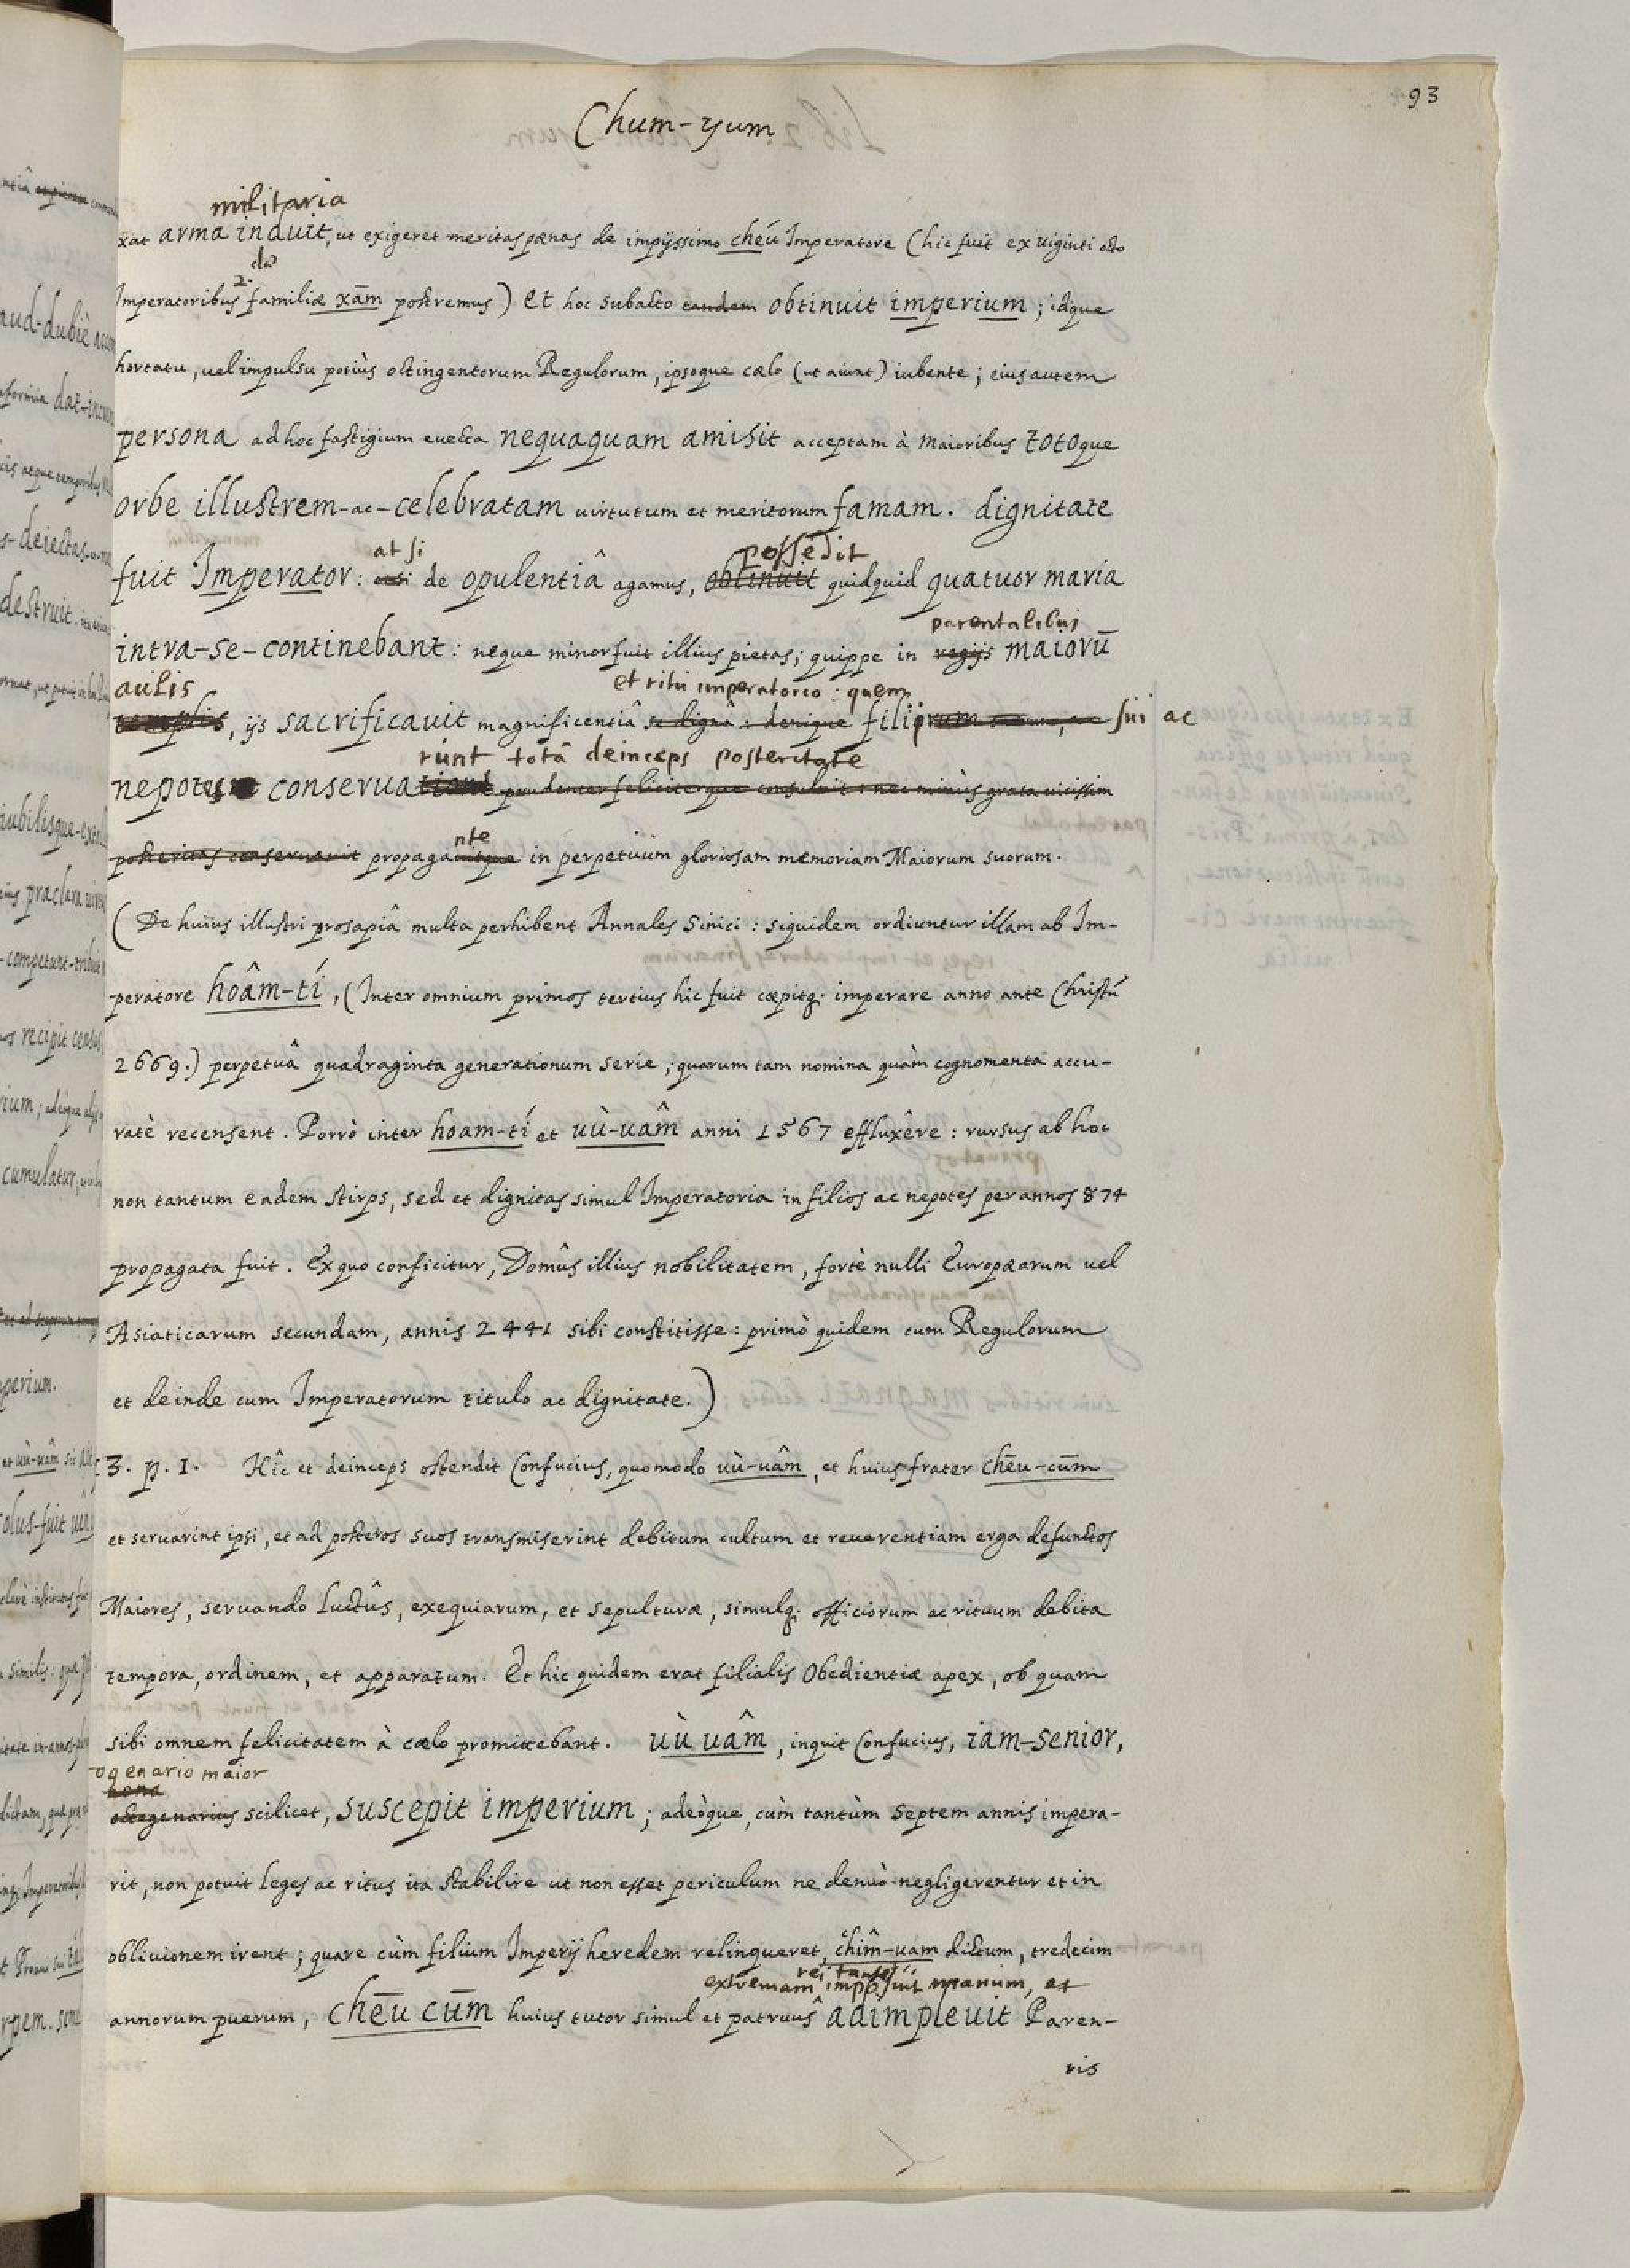 93
Chum-yum
militaria
xat arma induit, ut exigeret meritas pœnas de impijssimo chéu Imperatore (hic fuit ex uiginti octo
2. dæ
Imperatoribus familiæ xām postremus) et hoc subacto tandem obtinuit imperium; idque
hortatu, uel impulsu potiùs octingentorum Regulorum, ipsoque cælo (ut aiunt) iubente; eius autem
persona ad hoc fastigium euecta nequaquam amisit acceptam à maioribus totoque
orbe illustrem-ac-celebratam uirtutum et meritorum famam. dignitate
at si possedit
fuit Imperator: etsi de opulentiâ agamus, obtinuit quidquid quatuor maria
parentalibus
intra-se-continebant: neque minor fuit illius pietas; quippe in regijs maiorū
aulis et ritu imperatorio: quem
templis, ijs sacrificauit magnificentiâ se dignâ: denique filiorum suorum, ac sui ac
runt totâ deinceps posteritate
nepotes conseruationi prudenter feliciterque consuluit: nec minùs grata uicissim
nte
posteritas conseruauit propagauitque in perpetuum gloriosam memoriam Maiorum suorum.
(De huius illustri prosapiâ multa perhibent Annales Sinici: siquidem ordiuntur illam ab Im-
peratore hoâm-tí, (Inter omnium primos tertius hic fuit cæpitq. imperare anno ante Christū
2669.) perpetuâ quadraginta generationum serie; quarum tam nomina quàm cognomenta accu-
ratè recensent. Porrò inter hoam-tí et uù-uâm anni 1567 effluxêre: rursus ab hoc
non tantum eadem stirps, sed et dignitas simul Imperatoria in filios ac nepotes per annos 874
propagata fuit. Ex quo conficitur, Domûs illius nobilitatem, fortè nulli Europæarum uel
Asiaticarum secundam, annis 2441 sibi constitisse: primò quidem cum Regulorum
et deinde cum Imperatorum titulo ac dignitate.)
3. p. 1. Hîc et deinceps ostendit Confucius, quomodo uù-uâm, et huius frater chēu-cūm
et seruarint ipsi, et ad posteros suos transmiserint debitum cultum et reuerentiam erga defunctos
Maiores, seruando luctûs, exequiarum, et sepulturæ, simulq. officiorum ac rituum debita
tempora, ordinem, et apparatum. Et hic quidem erat filialis Obedientiæ apex, ob quam
sibi omnem felicitatem à cælo promittebant. uù uâm, inquit Confucius, iam-senior,
ogenario maior
nona
octogenarius scilicet, suscepit imperium; adeòque, cùm tantùm septem annis impera-
rit, non potuit leges ac ritus ita stabilire ut non esset periculum ne denuò negligerentur et in
obliuionem irent; quare cùm filium Imperij heredem relinqueret, chîm-uam dictum, tredecim
rei tantæ
extremam imposuit manum, et
annorum puerum, chēu cūm huius tutor simul et patruus adimpleuit Paren-
tis